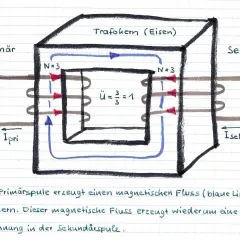 Trafokern (Eisen)
är
Se
N=3
N=3
Ü=3/3=1
I pri
I sek
Primärspule erzeugt einen magnetischen Fluss (blaue Li
ern. Dieser magnetische Fluss erzeugt wiederum eine
nnung in der Sekundärspule.